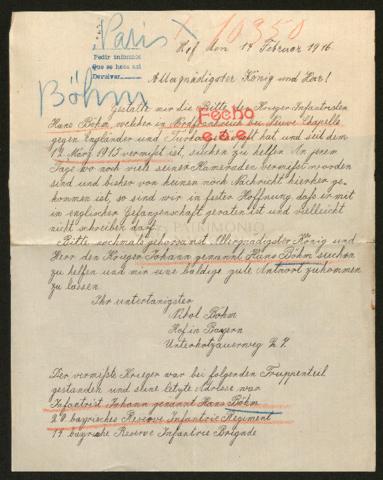 Paris
+ 10350
Hof den 14 Februar 1916
Pedir informes
Que se haga así
Devolver
Allergnädigster König und Herr!
Böhm
Gestatte mir die Bitte den Krieger Infanteristen
Fecho
Hans Böhm, welcher in Nordfrankreich bei Neuve Chapelle
gegen Engländer und hat und seit dem
12 März 1915 vermißt ist, suchen zu helfen. An jenem
Tage wo noch viele seiner Kameraden vermißt worden
sind und bisher von keinen noch Nachricht hierher ge-
kommen ist, so sind wir in fester Hoffnung, daß er mit
in englischer Gefangenschaft geraten ist und vielleicht
nicht schreiben darf.
PATRIMONIO
Bitte nochmals gehorsamst König und
Herr den Krieger Johann genannt Hans Böhm suchen
zu helfen und mir eine baldige gute Antwort zukommen
zu lassen.
Ihr untertänigster
Nikol Böhm
Hof in Bayern
Unterkotzauerweg
Der vermißte Krieger war bei folgenden Truppenteil
gestanden und seine letzte Adresse war
Infantrist Johann genannt Hans Böhm
bayrisches Reserve Infantrie Regiment
bayrische Reserve Infantrie Brigade